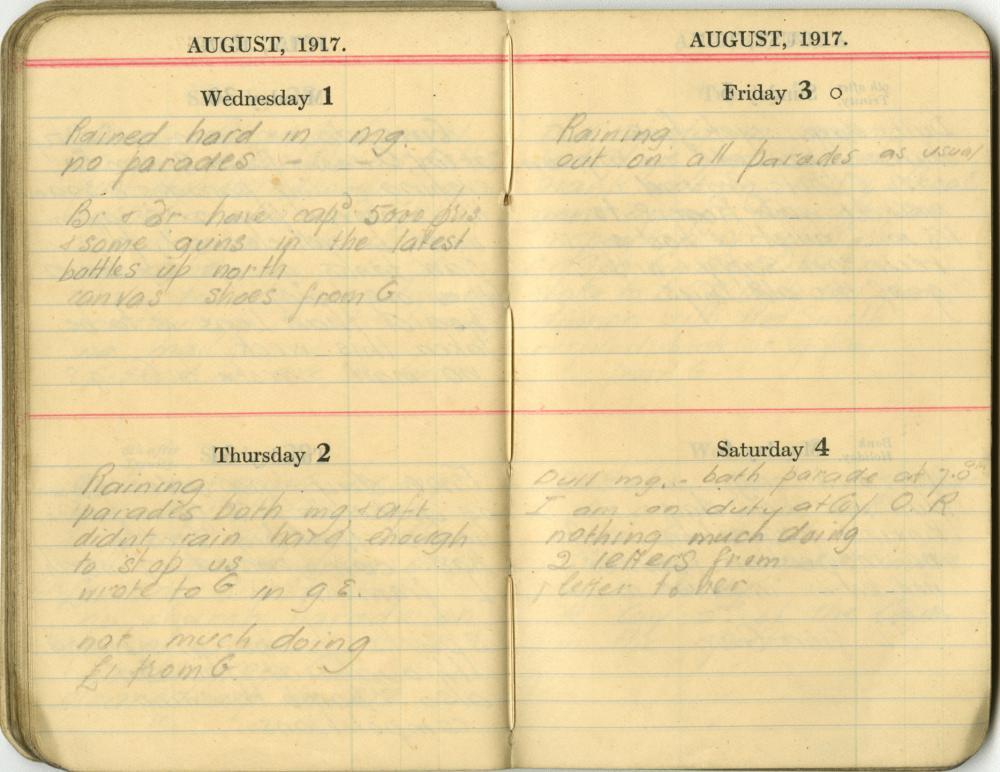 AUGUST, 1917.
Wednesday 1
Rained hard in mg.
no parades – –
Br & Fr have capd 5000 pris
& some guns in the latest
battles up north
canvas shoes from G
Thursday 2
Raining
parades both mg & aft
didnt rain hard enough
to stop us
wrote to G in g E.
not much doing
£1 from G.
AUGUST, 1917.
Friday 3
Raining
out on all parades as usual
Saturday 4
Dull mg. - bath parade at
I am on duty at Coy O. R
nothing much doing
2 letters from
letter to her